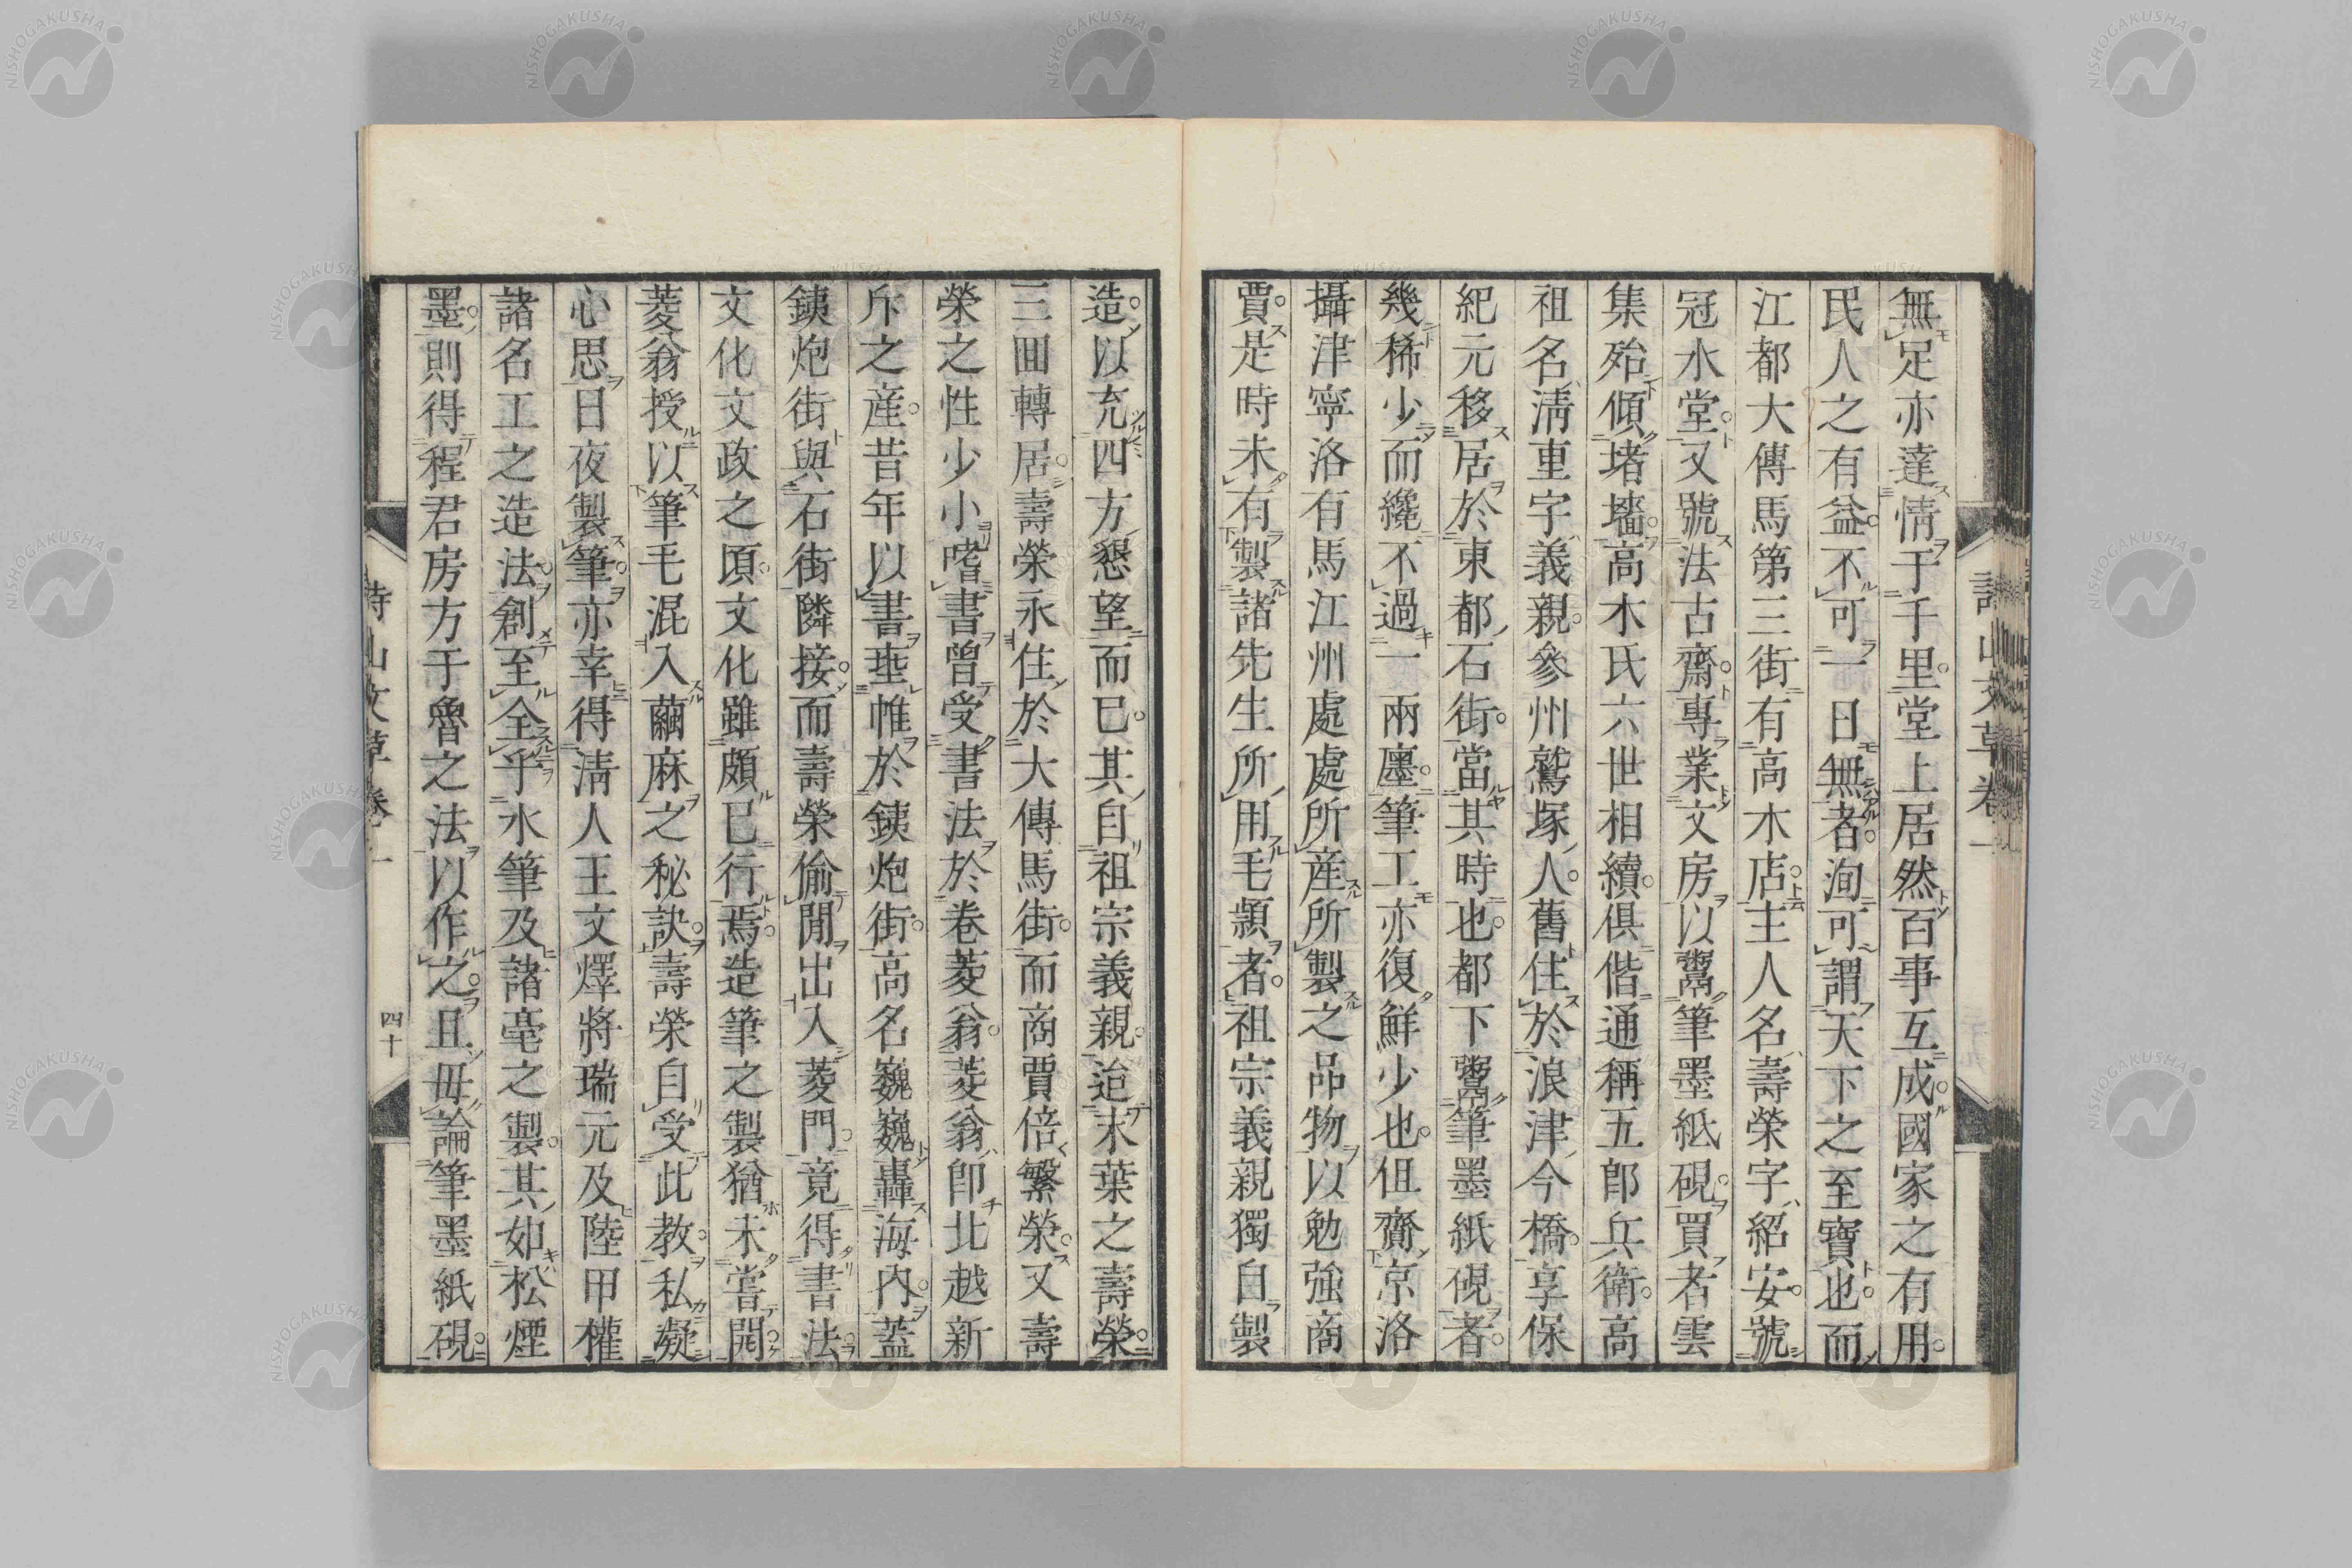 無足亦達情于千里堂上居然百事互成國家之有用
民人之有益不可一日無者洵可謂天下之至寶也而
江都大傳馬第三街有高木店主人名壽榮字紹安號
冠水堂又號法古齋專業文房以鬻筆墨紙硯買者雲
集殆傾堵墻高木氏六世相續俱偕通稱五郎兵衛高
祖名淸重字義親參州鷲塚人舊住於浪津今橋享保
紀元移居於東都石街當其時也都下鬻筆墨紙硯者
幾稀少而纔不過一兩廛筆工亦復鮮少也但齎京洛
攝津寧洛有馬江州處處所産所製之品物以勉強商
賈是時未有製諸先生所用毛穎者祖宗義親獨自製
造以充四方懇望而已其自祖宗義親迨末葉之壽榮
三回轉居壽榮永住於大傳馬街而商賈倍繁榮又壽
榮之性少小嗜書曾受書法於卷菱翁菱翁卽北越新
斥之産昔年以書垂帷於銕炮街高名巍巍轟海內蓋
銕炮街與石街隣接而壽榮偷閒出入菱門竟得書法
文化文政之頃文化雖頗已行焉造筆之製猶未嘗開
菱翁授以筆毛混入繭麻之秘訣壽榮自受此教私凝
心思日夜製筆亦幸得淸人王文燡將瑞元及陸甲權
諸名工之造法創至全乎水筆及諸毫之製其如松煙
墨則得程君房方于魯之法以作之且毋論筆墨紙硯
詩山文草卷一
四十
NISHOGAKUSHA